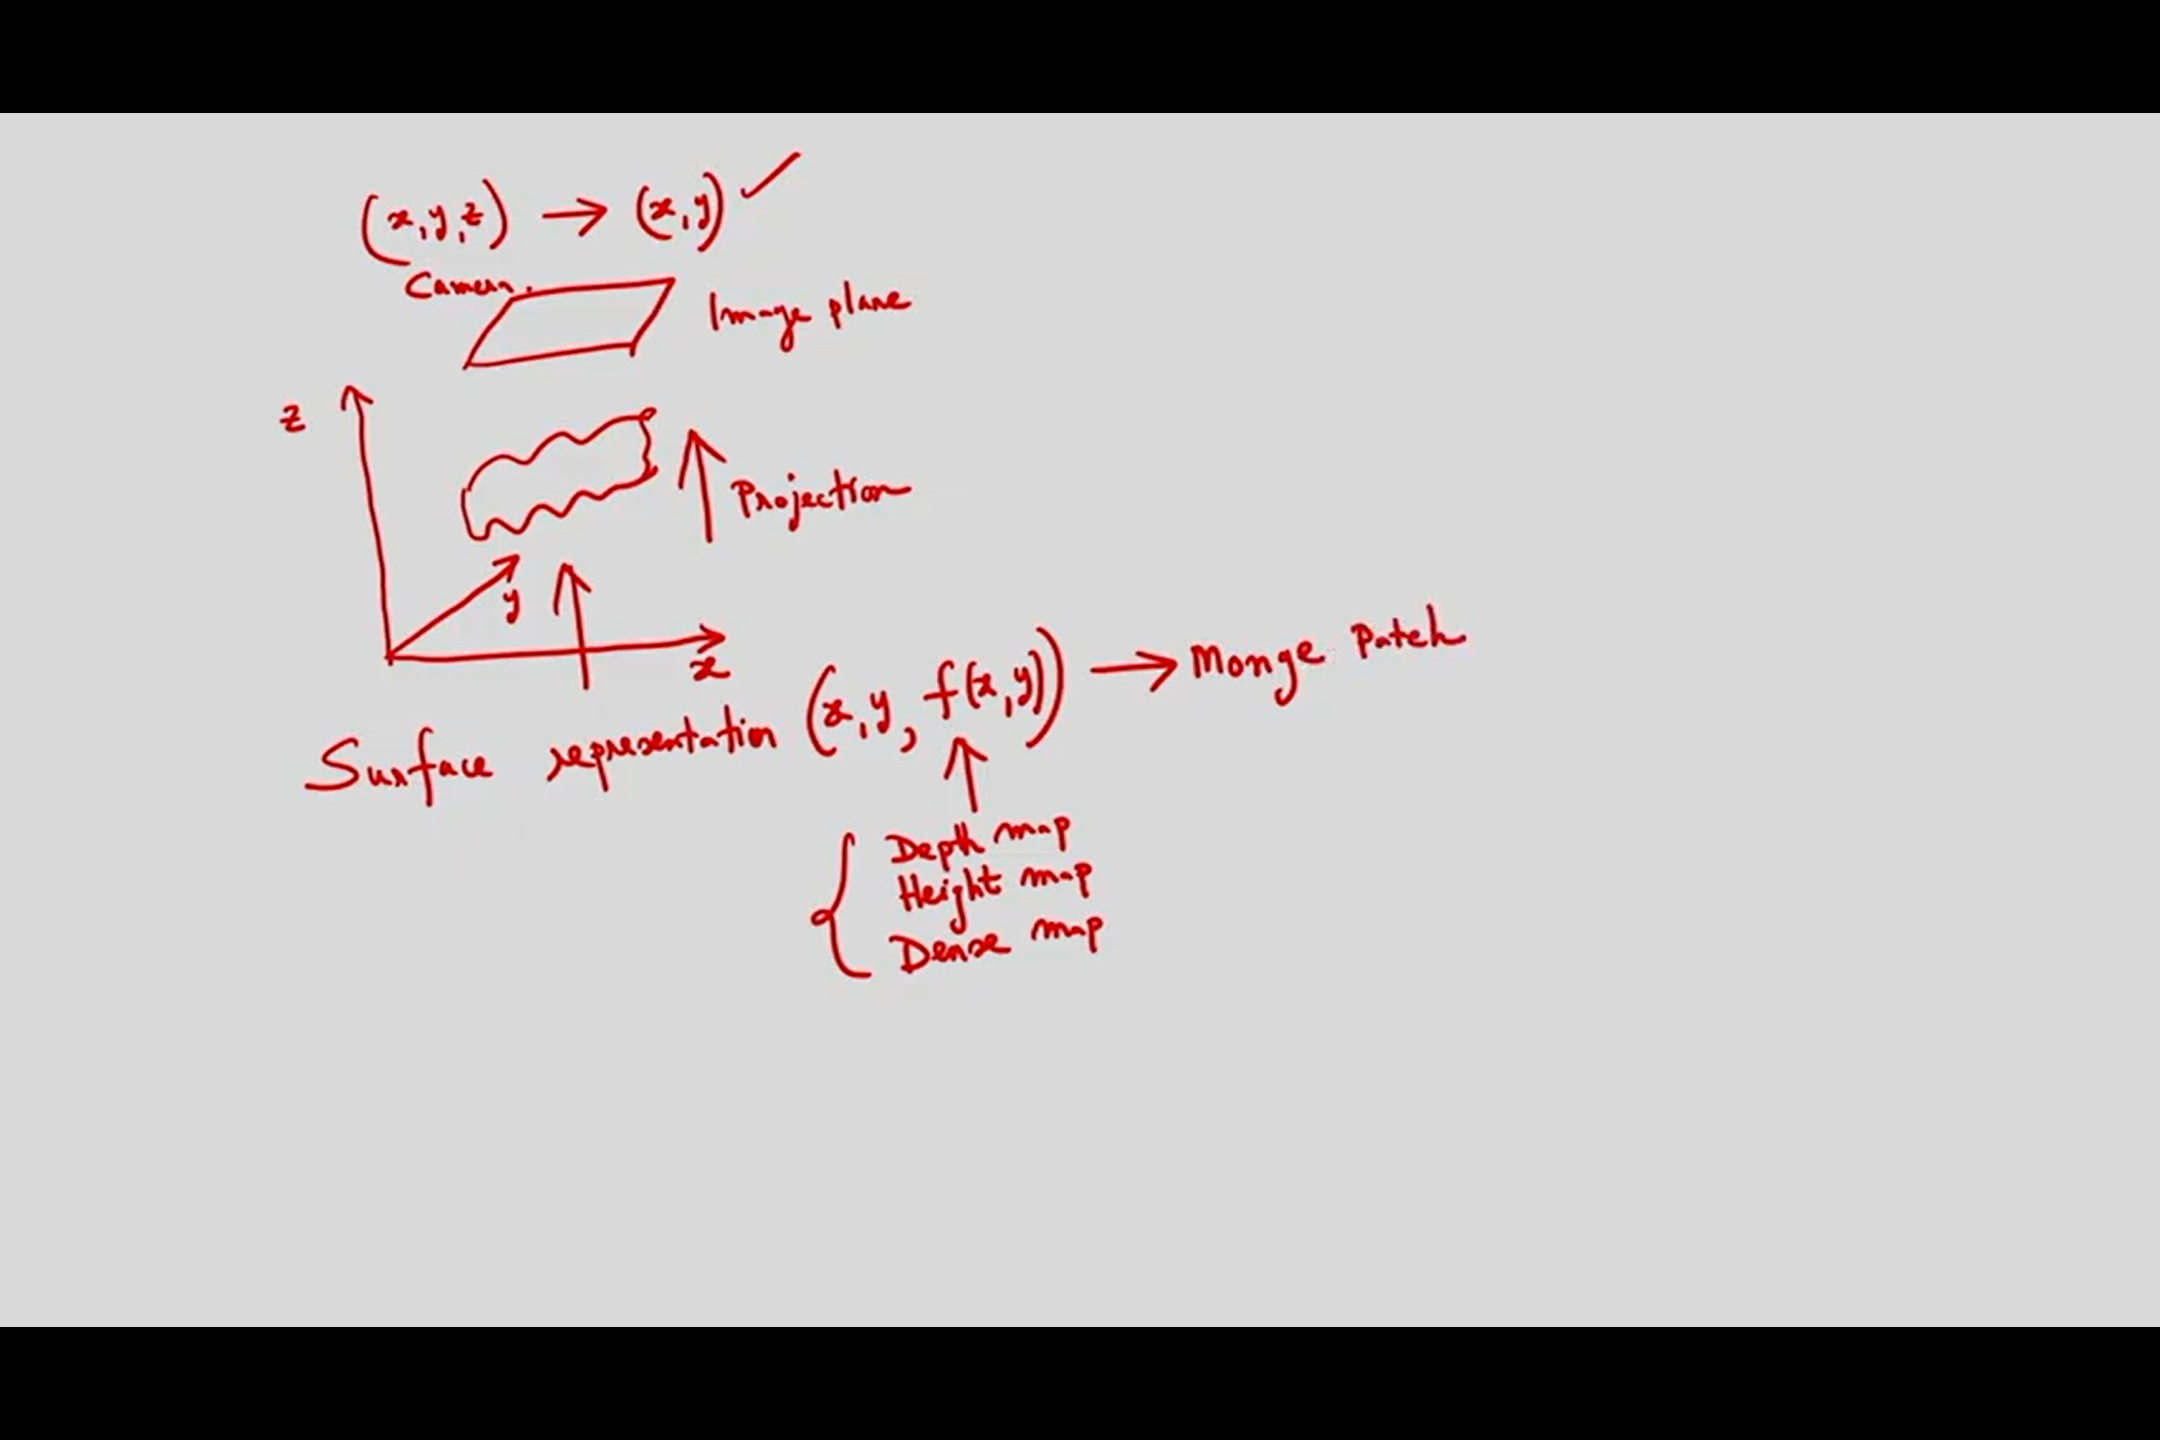 (x,y,z) → (x,y) ✓
Camera.
Image plane
z
Projection
y
x
Surface representation (x,y, f(x,y)) → Monge Patch
Depth map
Height map
Dense map